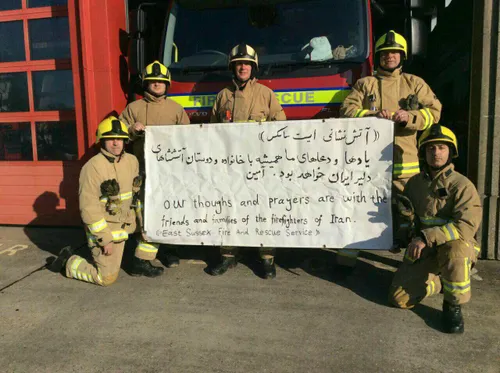 FIRE RESCUE
((آتش نشانی ایست ساسکس))
یادها و دعاهای ما همیشه با خانواده و دوستان آتشنشانهای
دلیر ایران خواهد بود. آمین
OUR thoughs and prayers are with the
friends and families of the firefighters of Iran.
«East Sussex Fire And Rescue Service»